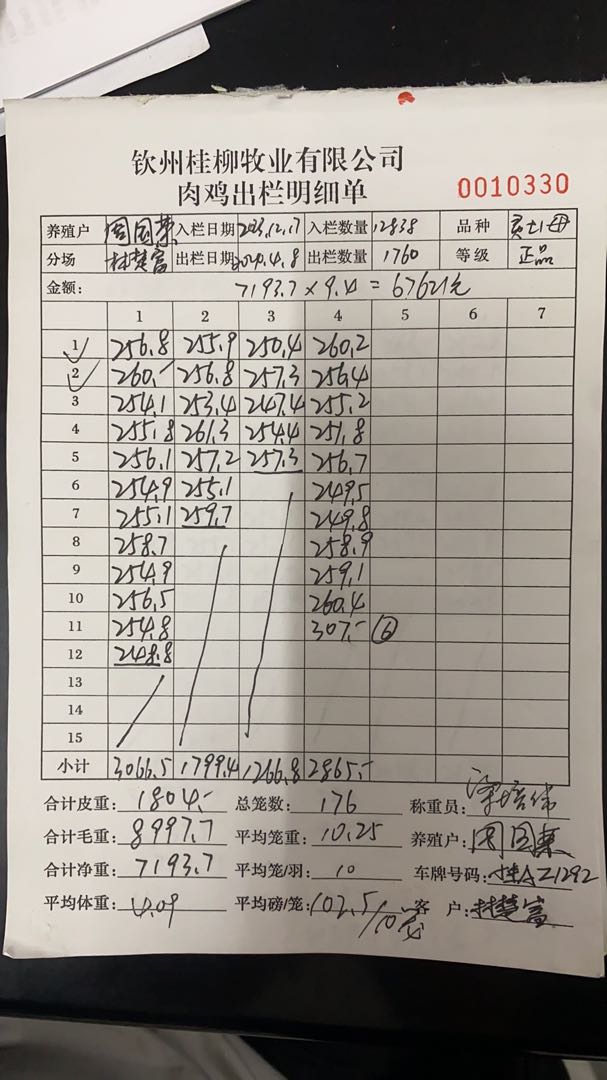 钦州桂柳牧业有限公司
肉鸡出栏明细单
0010330
养殖户 周国荣 入栏日期 2023.12.17 入栏数量 12838 品种
分场 林楚富 出栏日期 2024.4.8 出栏数量 1760 等级 正品
金额: 7193.7 × 9.4 = 67621元
1 2 3 4 5 6 7
1 256.8 255.9 250.4 260.2
2 260.- 256.8 257.3 256.4
3 254.1 253.4 247.4 255.2
4 255.8 261.3 254.4 251.8
5 256.1 257.2 257.3 256.7
6 254.9 255.1 249.5
7 255.1 259.7 249.8
8 258.7 258.9
9 254.9 259.1
10 256.5 260.4
11 254.8 307.- ⑥
12 248.8
13
14
15
小计 3066.5 1799.4 1266.8 2865.-
合计皮重: 1804.- 总笼数: 176 称重员:
合计毛重: 8997.7 平均笼重: 10.25 养殖户: 周国荣
合计净重: 7193.7 平均笼/羽: 10 车牌号码: 桂AZ1292
平均体重: 4.09 平均磅/笼: 102.5/10笼 客户: 林楚富